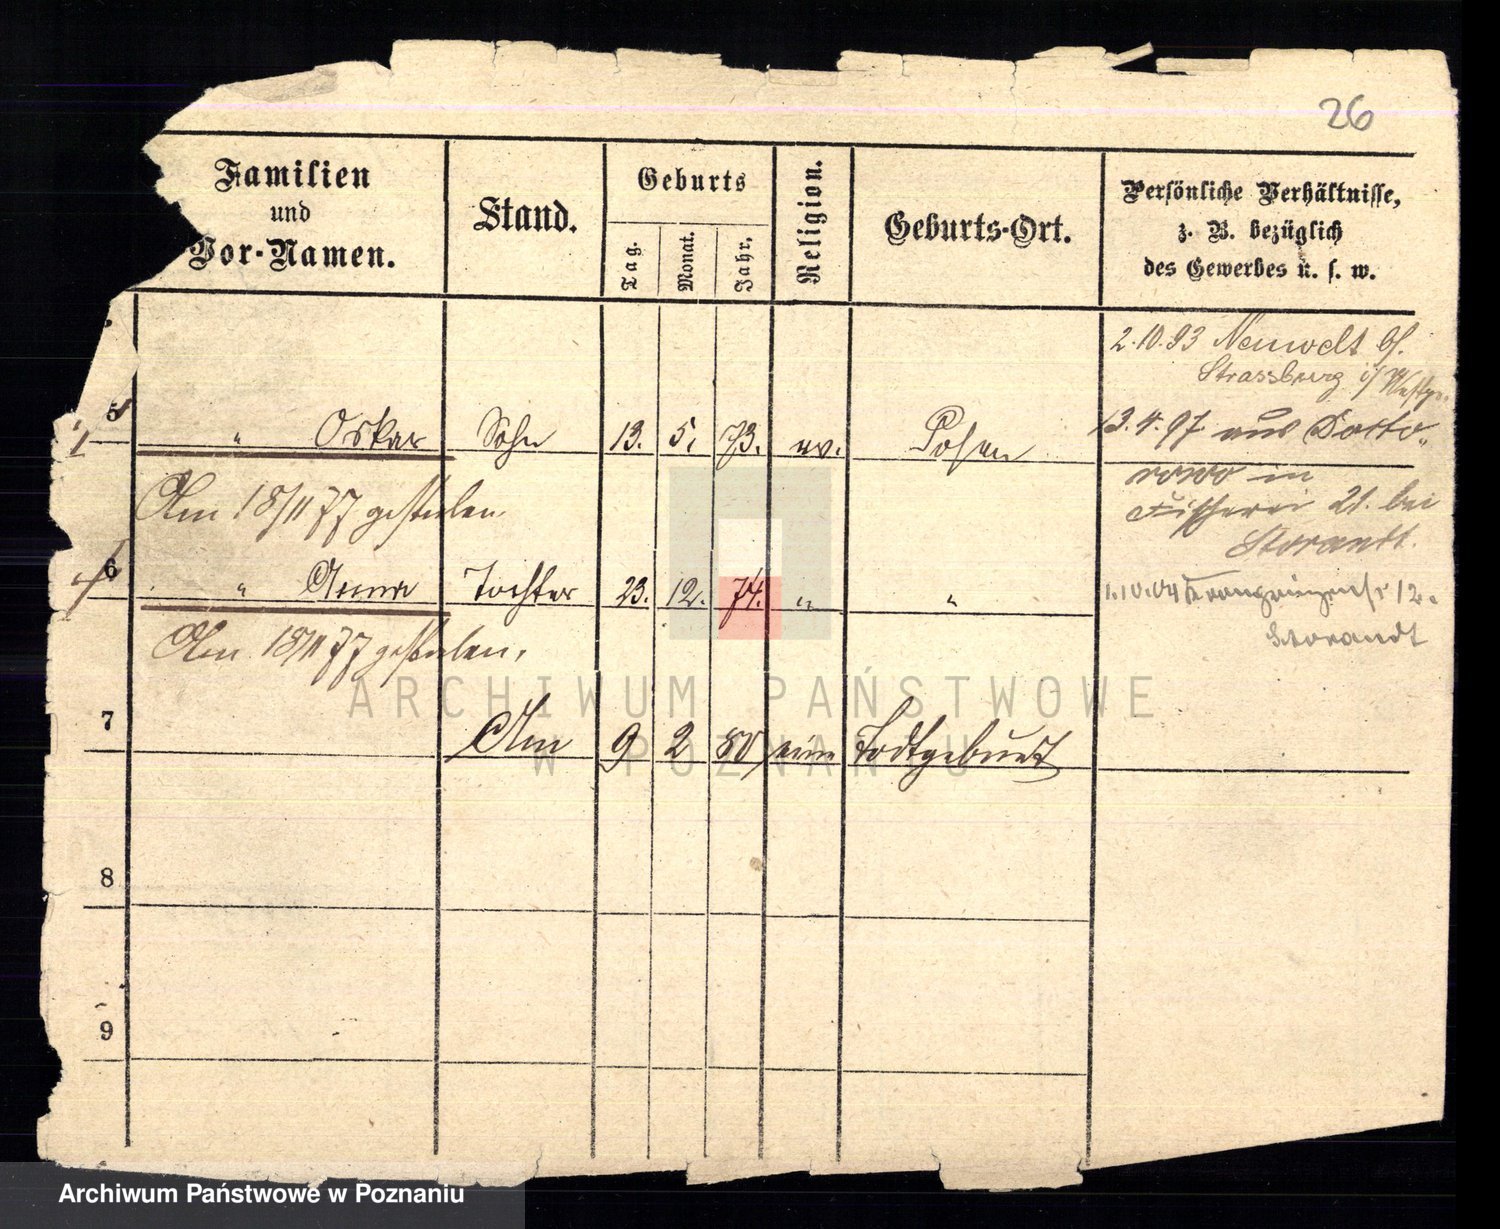 26
Familien
und
Vor-Namen.
Stand.
Geburts
Tag.
Monat.
Jahr.
Religion.
Geburts-Ort.
Persönliche Verhältnisse,
z. B. bezüglich
des Gewerbes u. s. w.
2.10.93 Neuwelt b/.
Strassburg i/ Westpr.
5
" Oskar Sohn 13. 5. 73. ev. Posen
13.4.97 aus
in
Am 18/11 77 gestorben.
Fischerei 21. bei
Storandt.
6
" Anna Tochter 23. 12. 74. " "
1.10.04 12.
Storandt
Am 18/11 77 gestorben.
7
Am 9 2 80 eine Todtgeburt
8
9
ARCHIWUM PAŃSTWOWE
W POZNANIU
Archiwum Państwowe w Poznaniu